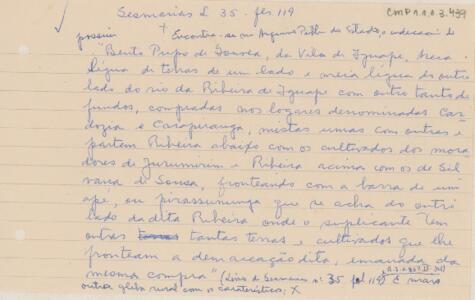 Sesmarias L 35. fls. 119
CMP 1.1.1.3.439
✓
possuiu
+ Encontra-se no Arquivo Publ. do Estado, o cadeaci de
"Bento Pupo de Gouvea, da Vila de Iguape, meia
légua de terras de um lado e meia légua do outro
lado do rio da Ribeira de Iguape com outro tanto de
fundos, compradas nos logares denominados Ca-
dozia e Carapiranga, mestas umas com outras e
partem Ribeira abaixo com os cultivados dos mora
dores de Jurumirim e Ribeira acima com os de Sil
varia de Sousa, fronteando com a barra de um
apé, ou pirassununga que se acha do outro
lado da dita Ribeira onde o suplicante tem
outras tantas terras e cultivados que lhe
fronteam a demarcação dita, emanada da
mesma compra" (Livro de Sesmarias nº 35 fl 119) É mais
outra gleba rural com os caracteristicos; X